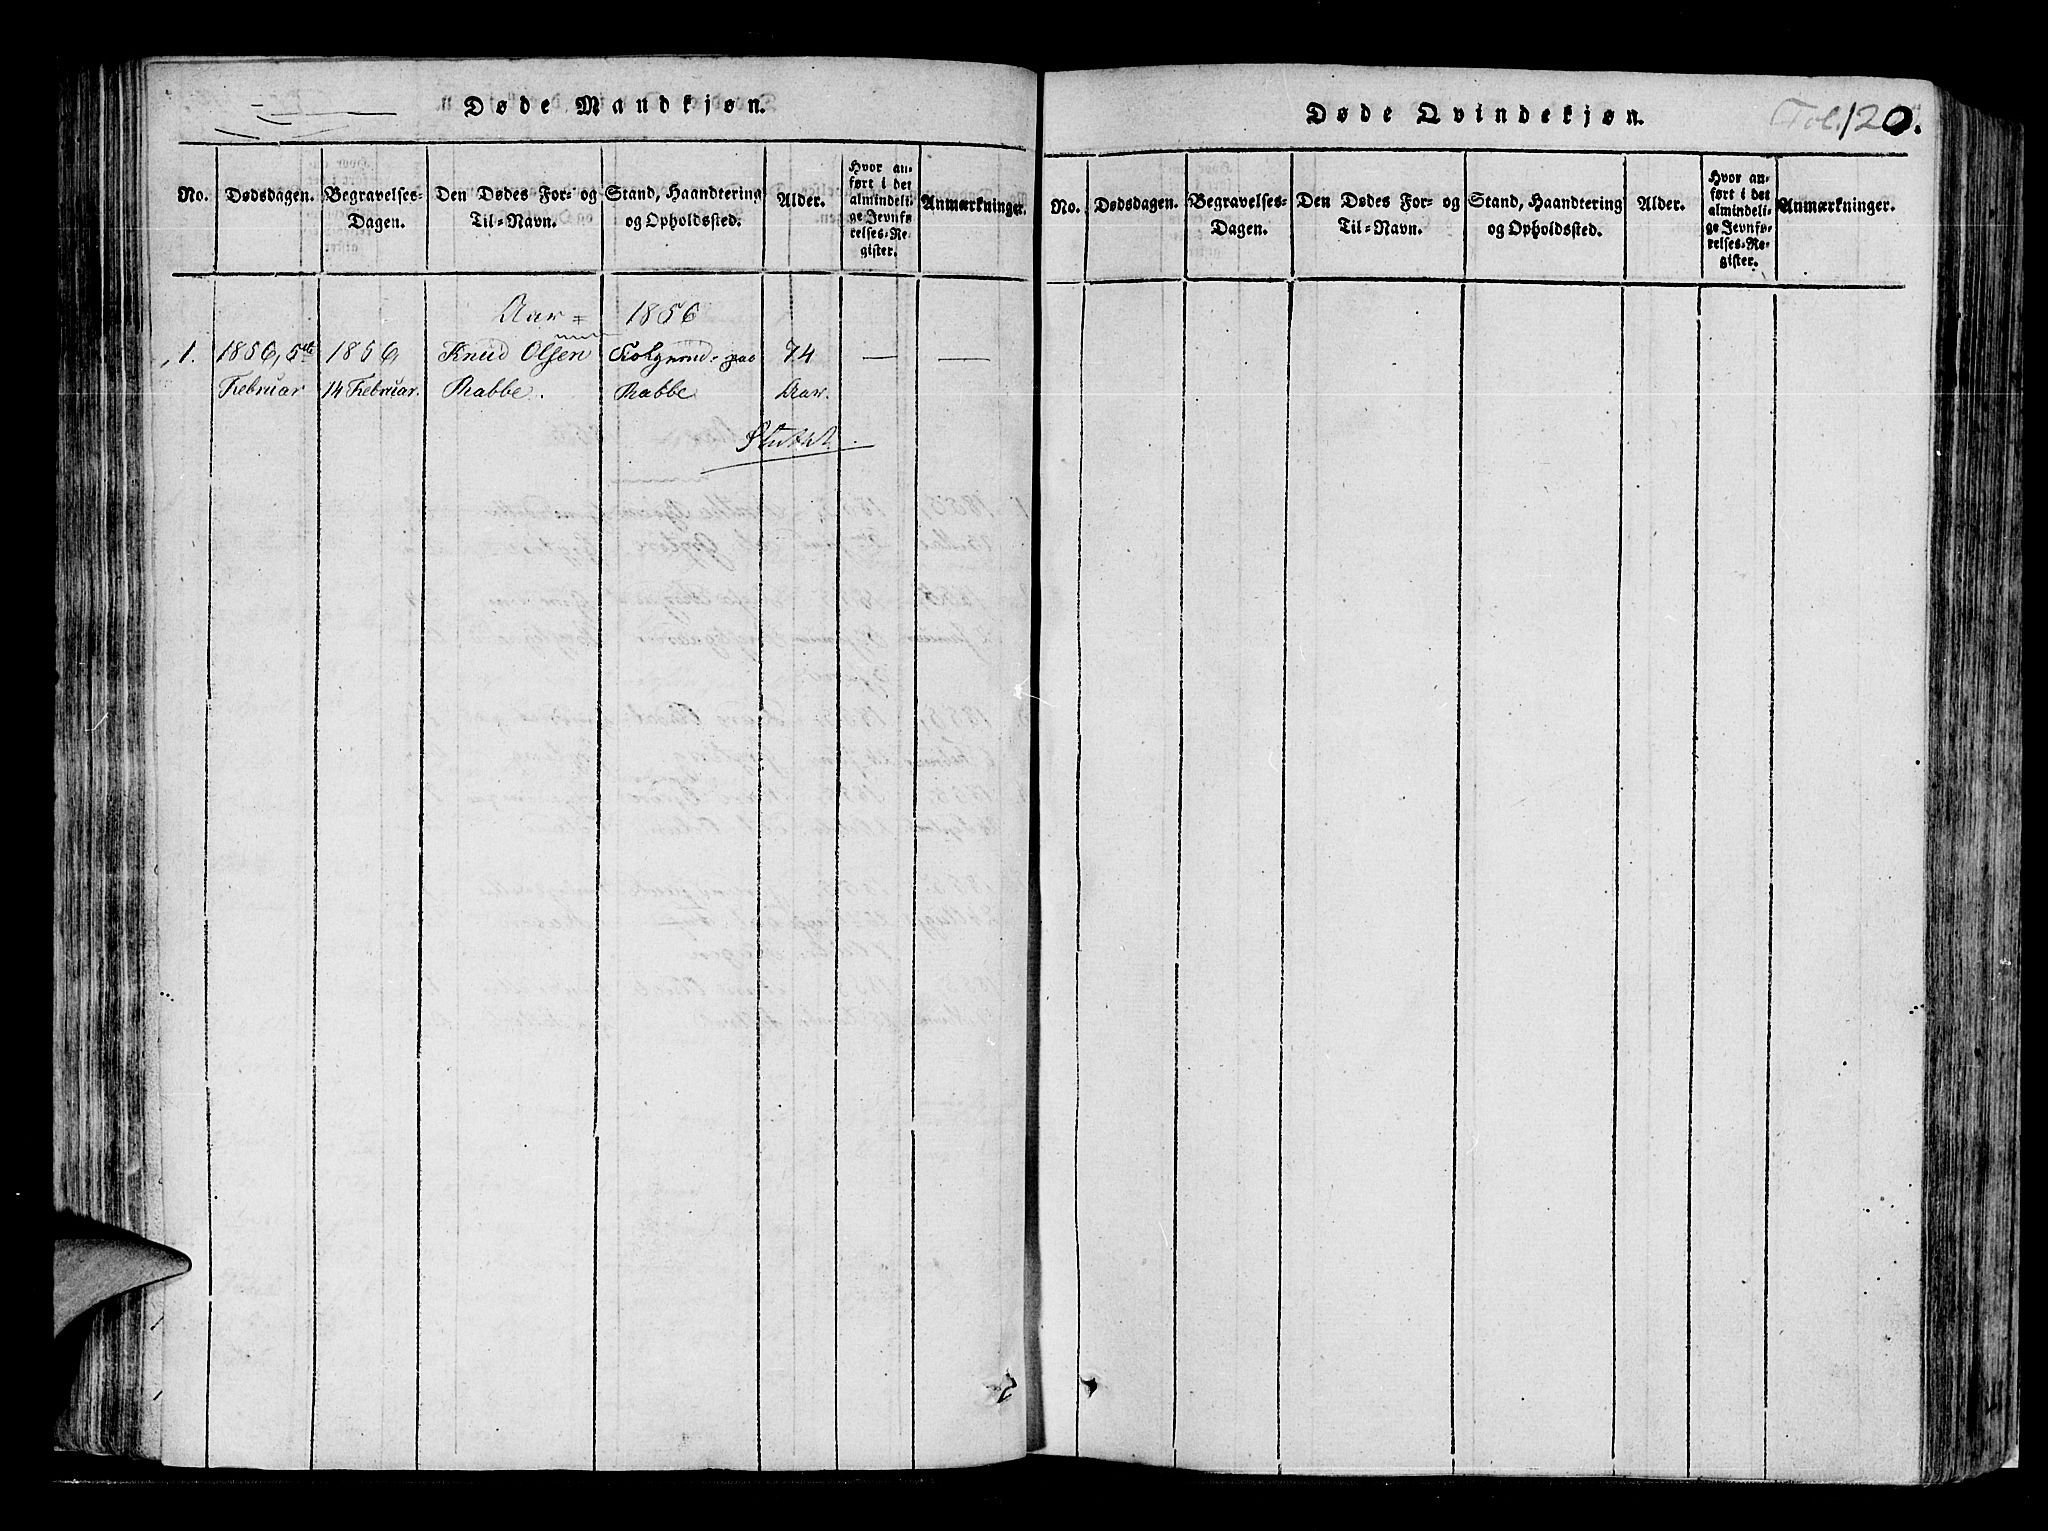 Døde Mandkjøn.
No. Dødsdagen. Begravelses-Dagen. Den Dødes For- og Til-Navn. Stand, Haandtering og Opholdssted. Alder. Hvor anført i det almindelige Jevnførelses-Register. Anmærkninger.
Aar 1856
1. 1856, 5te 1856, Knud Olsen paa 74 — —
Februar 14 Februar. Rabbe. Rabbe Aar.
Sluttet.
Døde Qvindekjøn. Fol. 120.
No. Dødsdagen. Begravelses-Dagen. Den Dødes For- og Til-Navn. Stand, Haandtering og Opholdssted. Alder. Hvor anført i det almindelige Jevnførelses-Register. Anmærkninger.